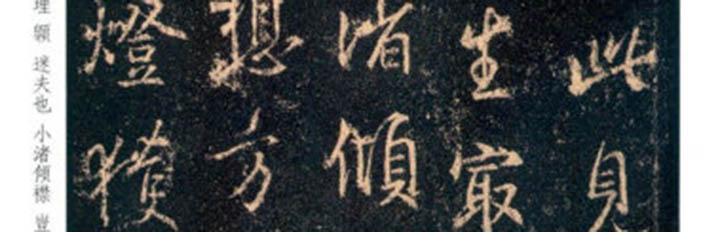 此見
生寂
渚傾
想方
燈獲
理 顥 迷夫也 小渚倾襟 豈